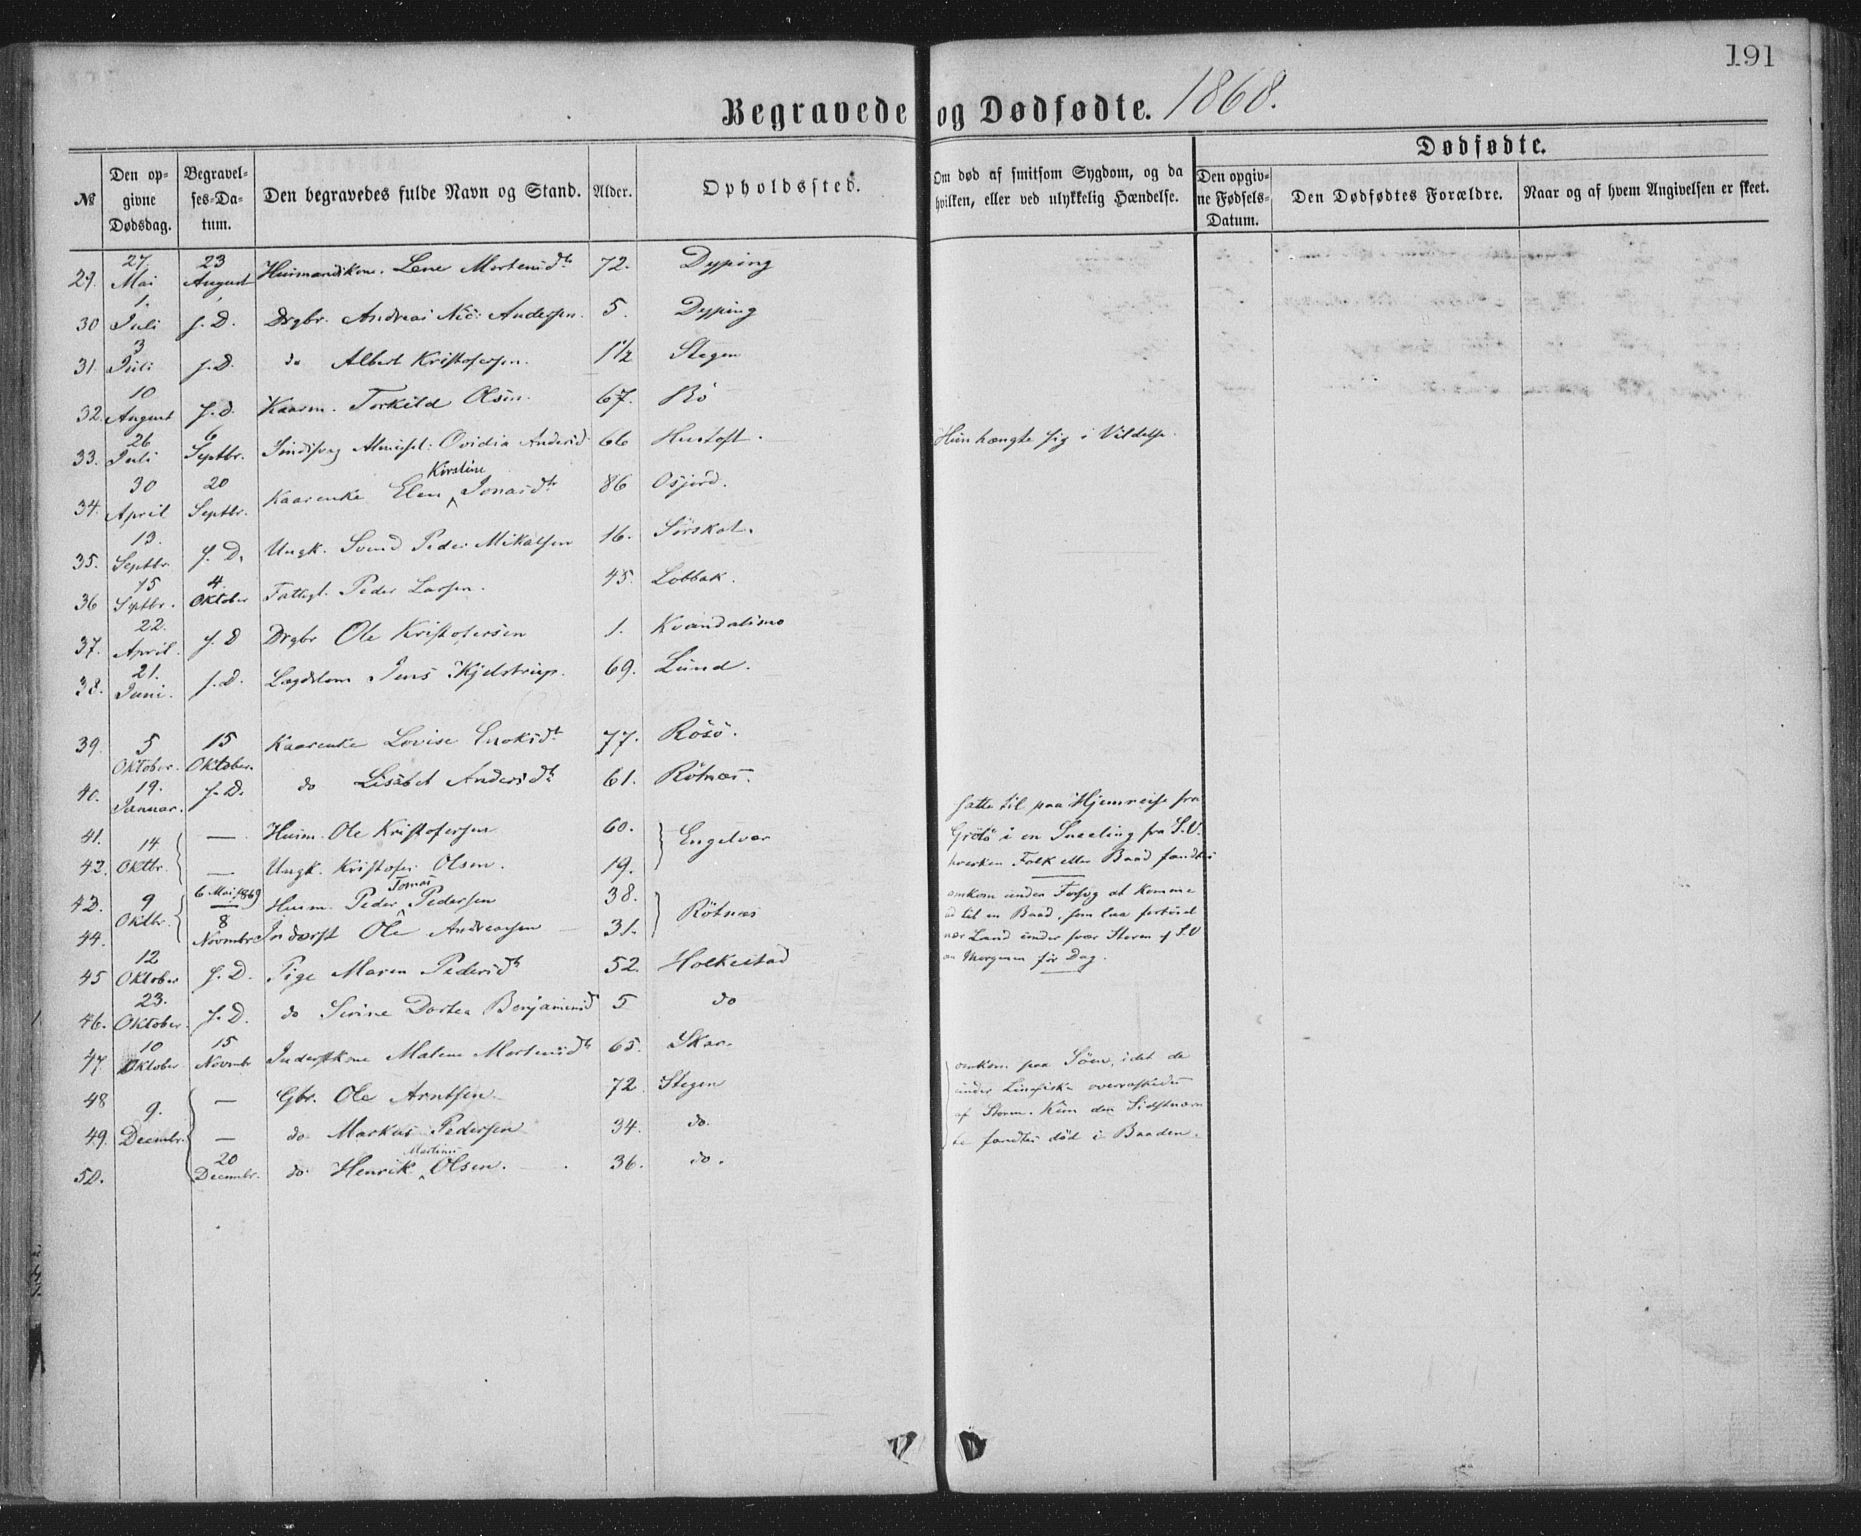 191
Begravede og Dødfødte. 1868.
№ Den opgivne Dødsdag. Begravelses-Datum. Den begravedes fulde Navn og Stand. Alder. Opholdssted. Om død af smitsom Sygdom, og da hvilken, eller ved ulykkelig Hændelse. Dødfødte.
Den opgivne Fødsels-Datum. Den Dødfødtes Forældre. Naar og af hvem Angivelsen er skeet.
29. 27. Mai 23 August Huusmandskone Lene Mortensdtr 72. Dyping
30 1. Juli s. D. Drgbr. Andreas Nic: Andersen. 5. Dyping
31. 3 Juli s. D. do Albert Kristofersen. 1 1/2 Stegen
32. 10 August s. d. Kaarm. Torkild Olsen. 67. Bö
33. 26 Juli 6 Septbr. Sindssvag Almisjel. Ovidia Andersd 66 Hustoft. Hun hængte sig i Vildelse.
34. 30 April 20 Septbr. Kaarenke Elen Kirstine Jonasdtr 86 Osjord.
35. 13. Septbr. s. D. Ungk. Svend Peder Mikalsen 16. Sörskot.
36 15 Septbr. 4. Oktober Fattigl. Peder Larsen. 45. Lobbak.
37. 22. April. s. D Drgbr Ole Kristofersen 1. Kvandalsmo
38. 21. Juni. s. D. Lægdslem Jens Kjelstrup. 69. Lund.
39. 5 Oktober. 15 Oktober. Kaarenke Lovise Enoksdtr 77. Rösö.
40. 19. Januar. s. D. do Lisabet Andersdtr 61. Rötnæs.
41. 14 Oktbr. — Huusm. Ole Kristofersen 60. Engelvær satte til paa Hjemreise fra
42. — Ungk. Kristofer Olsen. 19. Grötö i en Sneeling fra S.V. hverken Folk eller Baad fandtes
43. 9 Oktbr. 6 Mai 1869 Huusm. Peder Tomas Pedersen 38. Rötnæs omkom under Forsög at komme
44. 8 Novembr. Inderst Ole Andreassen 31. ud til en Baad, som laa fortöiet nær Land under svær Storm af S.V om Morgenen för Dag.
45 12 Oktober s. D. Pige Maren Pedersdtr 52. Holkestad
46. 23. Oktober. s. D. do Sirine Dortea Benjaminsd 5 do
47. 10 Oktober 15 Novembr Inderstkone Malene Mortensdtr 65. Skar.
48 9. Decembr. — Gbr. Ole Arntsen. 72. Stegen omkom paa Söen, idet de
49. — do Markus Pedersen 34. do. under Linefiske overraskedes af Storm. Kun den Sidstnævn
50. 20 Decembr. do Henrik Martinus Olsen. 36. do. te fandtes död i Baaden.